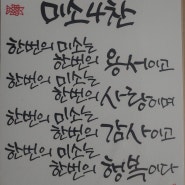 미소4찬
한번의 미소는
한번의 용서이고
한번의 미소는
한번의 사랑이며
한번의 미소는
한번의 감사이고
한번의 미소는
한번의 행복이다